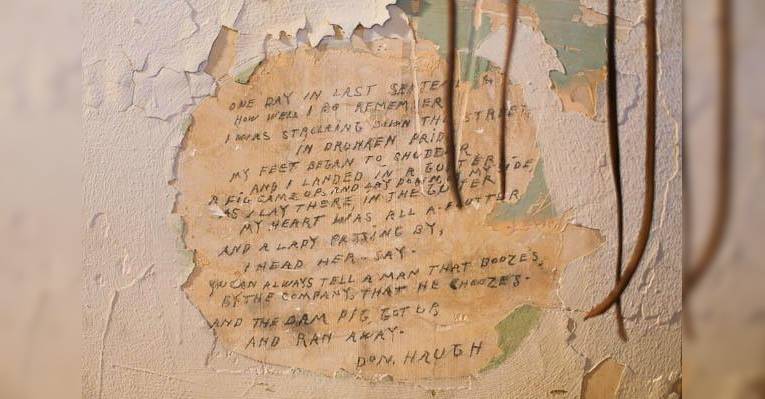 ONE DAY IN LAST SEPTEM
HOW WELL I DO REMEMBER
I WAS STROLLING DOWN THE STREET,
IN DRUNKEN PRIDE
MY FEET BEGAN TO SHUDDER
AND I LANDED IN A GUTTER
A PIG CAME UP, AND LAY DOWN, BY MY SIDE,
AS I LAY THERE IN THE GUTTER
MY HEART WAS ALL A-FLUTTER
AND A LADY PASSING BY,
I HEAD HER SAY.
YOU CAN ALWAYS TELL A MAN THAT BOOZES,
BY THE COMPANY, THAT HE CHOOZES.
AND THE DAM PIG GOT UP,
AND RAN AWAY.
DON. HAUGH